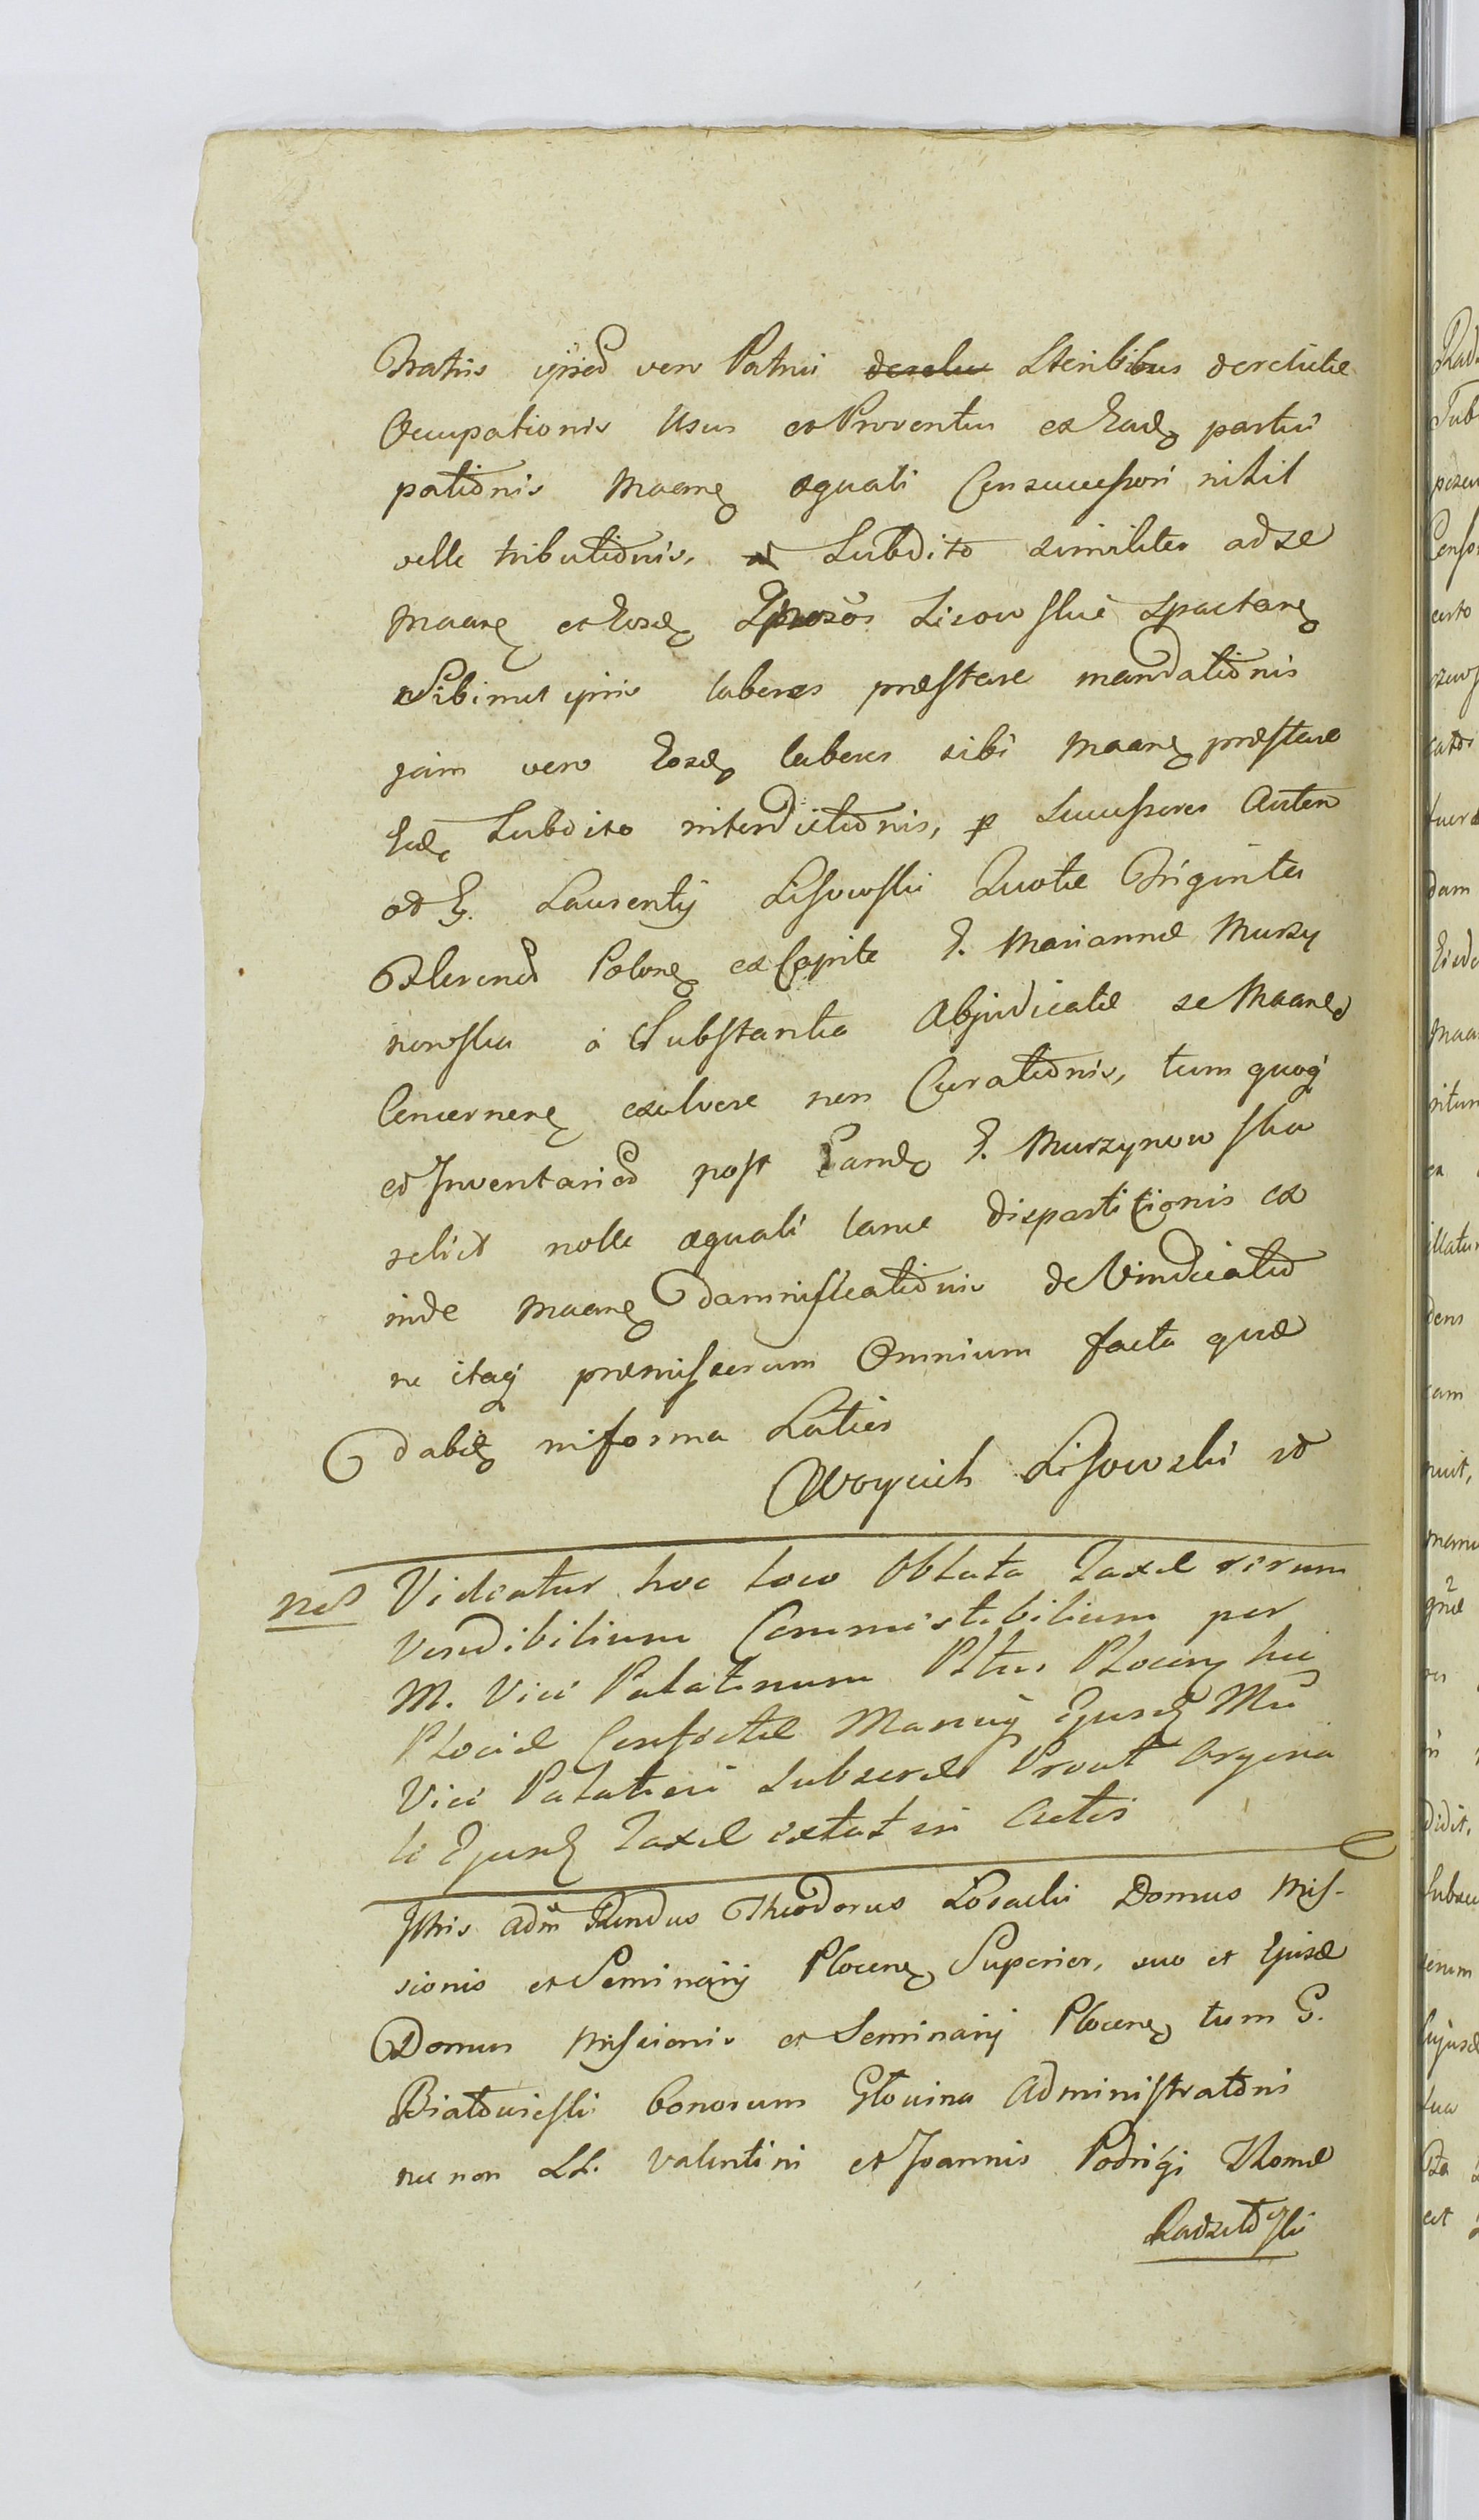 Fratris ipsius vero Patrui derelic Sterilibus derelictæ
Occupationis Usus et Proventus ex Eade partici
pationis Maane æquali Consuccessori nihil
velle tributionis, Subdito similiter ad se
Maane et Eosde Sposos Lisowskie Spectane
Sibimet ipsis labores præstare mandationis
jam vero Eosde labores sibi Maane præstare
Eide Subdito interdictionis, per Successores Autem
Laurentij Lisowski Quotæ Triginta
Flerened Polone ex Capite G. Mariannæ Murzy
nowska à Substantia Abjudicatæ se Maane
Concernene exolvere non Curationis, tum quoq
et Inventaried post Eande G. Murzynowska
relict nolle æquali lance dispartitionis ex
inde Maane damnificationis de Vindicatio
ne itaq præmissorum Omnium facta quæ
dabit in forma Latior
Woyciech Lisowski
Videatur hoc loco Oblata Taxæ rerum
Vendibilium Commestibilium per
M. Vice Palatinum Pltus Plocen hic
Plociæ Confectæ Manuq Ejusd Mci
Vice Palatini Subscræ Prout Orygina
le Ejusd Taxæ extat in Actis
Isthis adm Rendus Theodorus Losacki Domus Mis-
sionis et Seminarij Plocene Superior, suo et Ejusde
Domus Missionis et Seminarij Plocene tum G.
Białowieski bonorum Głowina Administratoris
nec non LL. Valentini et Joannis Podrigi Thomæ